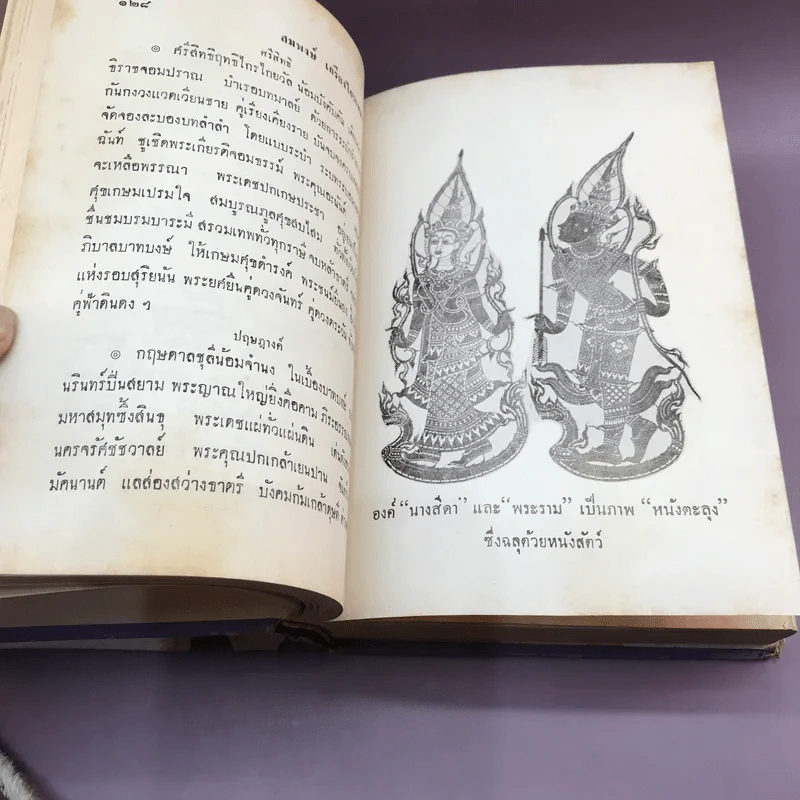 ๑๒๘
สมพงษ์
ศรีสิทธิ
๏ ศรีสิทธิฤทธิไกรไกยวัล น้อมบังคับคัล
ธิราชจอมปราณ บำเรอบทมาลย์ ด้วยการ
กันกงวงแวดเวียนขาย คู่เรียงเคียงราย
จัดจองละบองบทลำลำ โดยแบบระบำ
ฉันท์ ชูเชิดพระเกียรติจอมธรรม์ พระคุณ
จะเหลือพรรณา พระเดชปกเกษประชา
ศุขเกษมเปรมใจ สมบูรณภูลศุขสบไสม
ชื่นชมบรมบาระมี สรวมเทพทั่วทุกราษี
ภิบาลบาทบงษ์ ให้เกษมศุขดำรงค์ พระชนม์ยืน
แห่งรอบสุริยนัน พระยศยิ่นคู่ดวงจันทร์ คู่ดวงตระวัน
คู่ฟ้าดินดง ๆ
ปฤษฎางค์
๏ กฤษดาลชุลีน้อมจำนง ในเบื้องบาทบงษ์
นรินทร์ปิ่นสยาม พระญาณใหญ่ยิ่งคือคาม
มหาสมุททซึ้งสินธุ พระเดชแผ่ทั่วแผ่นดิน
นครจรัศชัชวาลย์ พระคุณปกเกล้าเยนปาน
มัคนานต์ แลส่องสว่างธาตรี บังคมก้มเกล้าดุษดี
องค์ “นางสีดา” และ “พระราม” เป็นภาพ “หนังตะลุง”
ซึ่งฉลุด้วยหนังสัตว์